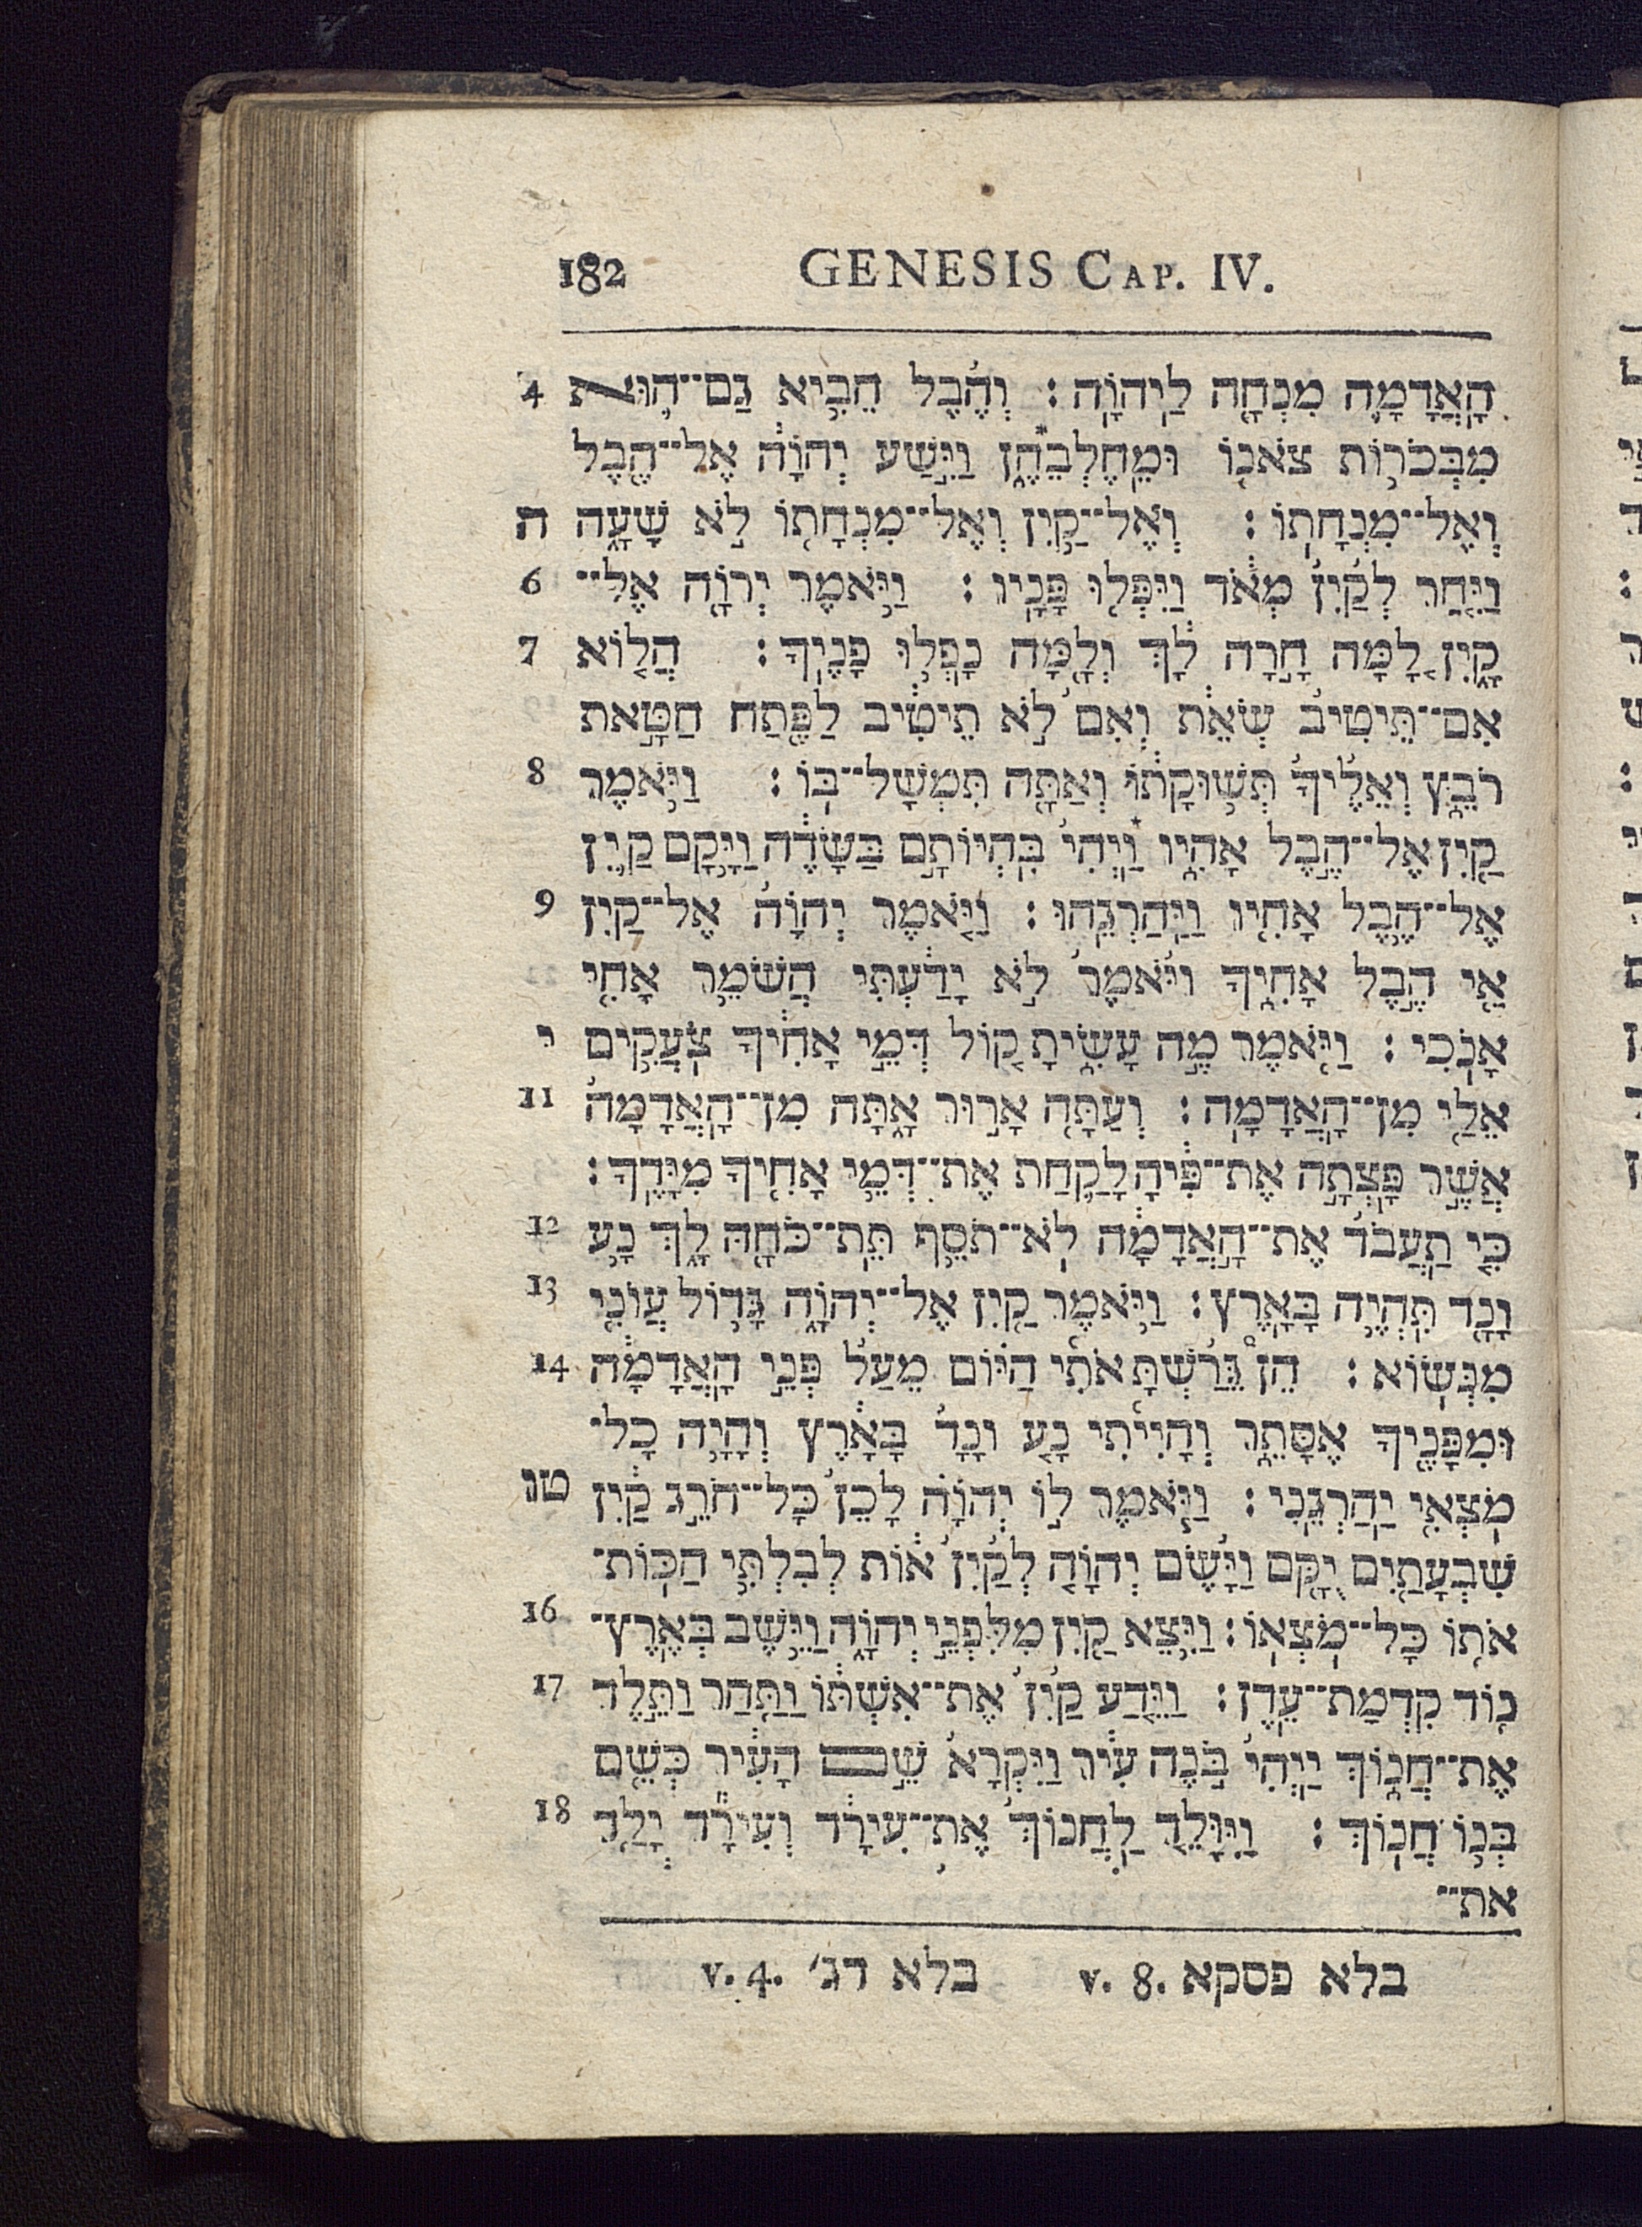 182 GENESIS CAP. IV.
הָֽאֲדָמָ֛ה מִנְחָ֖ה לַֽיהוָֹֽה׃ וְהֶ֨בֶל הֵבִ֥יא גַם־ה֛וּא 4
מִבְּכֹר֥וֹת צֹאנ֖וֹ וּמֵֽחֶלְבֵהֶ֑ן* וַיִּ֣שַׁע יְהוָֹ֔ה אֶל־הֶ֖בֶל
וְאֶל־מִנְחָתֽוֹ׃ וְאֶל־קַ֥יִן וְאֶל־מִנְחָת֖וֹ לֹ֣א שָׁעָ֑ה ה
וַיִּ֤חַר לְקַ֨יִן֙ מְאֹ֔ד וַֽיִּפְּל֖וּ פָּנָֽיו׃ וַיֹּ֥אמֶר יְהוָֹ֖ה אֶל־ 6
קָ֑יִן לָ֚מָּה חָ֣רָה לָ֔ךְ וְלָ֖מָּה נָפְל֥וּ פָנֶֽיךָ׃ הֲל֤וֹא 7
אִם־תֵּיטִיב֙ שְׂאֵ֔ת וְאִם֙ לֹ֣א תֵיטִ֔יב לַפֶּ֖תַח חַטָּ֣את
רֹבֵ֑ץ וְאֵלֶ֨יךָ֙ תְּשׁ֣וּקָת֔וֹ וְאַתָּ֖ה תִּמְשָׁל־בּֽוֹ׃ וַיֹּ֥אמֶר 8
קַ֖יִן אֶל־הֶ֣בֶל אָחִ֑יו* וַֽיְהִי֙ בִּהְיוֹתָ֣ם בַּשָּׂדֶ֔ה וַיָּ֥קָם קַ֛יִן
אֶל־הֶ֥בֶל אָחִ֖יו וַיַּהַרְגֵֽהוּ׃ וַיֹּ֤אמֶר יְהוָֹה֙ אֶל־קַ֔יִן 9
אֵ֖י הֶ֣בֶל אָחִ֑יךָ וַיֹּ֨אמֶר֙ לֹ֣א יָדַ֔עְתִּי הֲשֹׁמֵ֥ר אָחִ֖י
אָנֹֽכִי׃ וַיֹּ֖אמֶר מֶ֣ה עָשִׂ֑יתָ ק֚וֹל דְּמֵ֣י אָחִ֔יךָ צֹֽעֲקִ֥ים י
אֵלַ֖י מִן־הָֽאֲדָמָֽה׃ וְעַתָּ֖ה אָר֣וּר אָ֑תָּה מִן־הָֽאֲדָמָה֙ 11
אֲשֶׁ֣ר פָּצְתָ֣ה אֶת־פִּ֔יהָ לָקַ֛חַת אֶת־דְּמֵ֥י אָחִ֖יךָ מִיָּדֶֽךָ׃
כִּ֤י תַֽעֲבֹד֙ אֶת־הָ֣אֲדָמָ֔ה לֹֽא־תֹסֵ֥ף תֵּת־כֹּחָ֖הּ לָ֑ךְ נָ֥ע 12
וָנָ֖ד תִּֽהְיֶ֥ה בָאָֽרֶץ׃ וַיֹּ֥אמֶר קַ֖יִן אֶל־יְהוָֹ֑ה גָּד֥וֹל עֲוֹנִ֖י 13
מִנְּשֽׂוֹא׃ הֵן֩ גֵּרַ֨שְׁתָּ אֹתִ֜י הַיּ֗וֹם מֵעַל֙ פְּנֵ֣י הָֽאֲדָמָ֔ה 14
וּמִפָּנֶ֖יךָ אֶסָּתֵ֑ר וְהָיִ֜יתִי נָ֤ע וָנָד֙ בָּאָ֔רֶץ וְהָיָ֥ה כָל־
מֹֽצְאִ֖י יַֽהַרְגֵֽנִי׃ וַיֹּ֧אמֶר ל֣וֹ יְהוָֹ֗ה לָכֵן֙ כָּל־הֹרֵ֣ג קַ֔יִן טו
שִׁבְעָתַ֖יִם יֻקָּ֑ם וַיָּ֨שֶׂם יְהוָֹ֤ה לְקַ֨יִן֙ א֔וֹת לְבִלְתִּ֥י הַכּֽוֹת־
אֹת֖וֹ כָּל־מֹֽצְאֽוֹ׃ וַיֵּ֥צֵא קַ֖יִן מִלִּפְנֵ֣י יְהוָֹ֑ה וַיֵּ֥שֶׁב בְּאֶֽרֶץ־ 16
נ֖וֹד קִדְמַת־עֵֽדֶן׃ וַיֵּ֤דַע קַ֨יִן֙ אֶת־אִשְׁתּ֔וֹ וַתַּ֖הַר וַתֵּ֣לֶד 17
אֶת־חֲנ֑וֹךְ וַֽיְהִי֙ בֹּ֣נֶה עִ֔יר וַיִּקְרָא֙ שֵׁ֣ם הָעִ֔יר כְּשֵׁ֖ם
בְּנ֥וֹ חֲנֽוֹךְ׃ וַיִּוָּלֵ֤ד לַֽחֲנוֹךְ֙ אֶת־עִירָ֔ד וְעִירָ֕ד יָלַ֖ד 18
את־
בלא פסקא v. 8. בלא דג׳ v. 4.